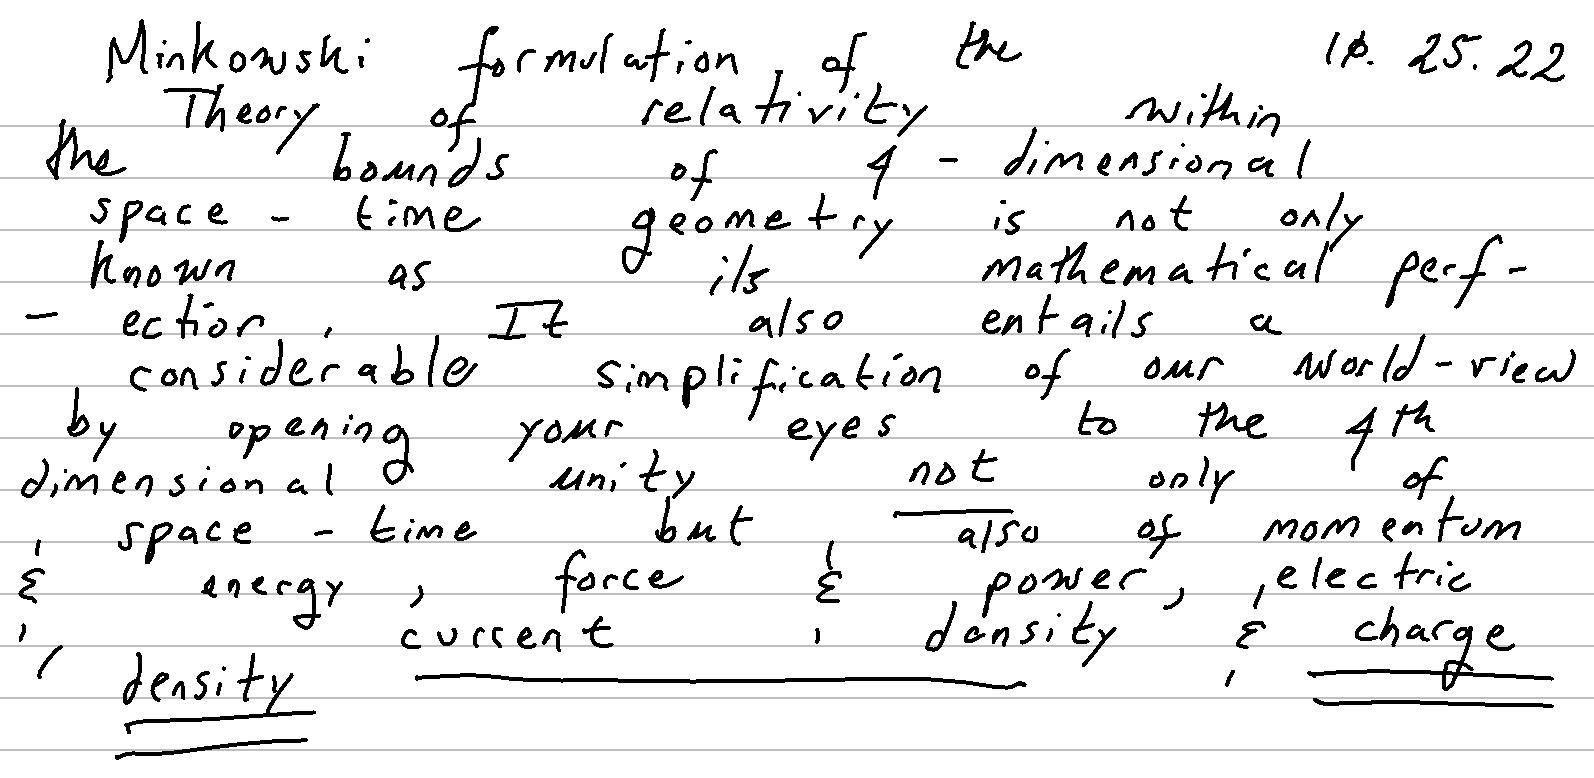 Minkowski formulation of the 10.25.22
Theory of relativity within
the bounds of 4-dimensional
space-time geometry is not only
known as its mathematical perf-
-ection. It also entails a
considerable simplification of our world-view
by opening your eyes to the 4th
dimensional unity not only of
space-time but also of momentum
& energy, force & power, electric
current density & charge
density